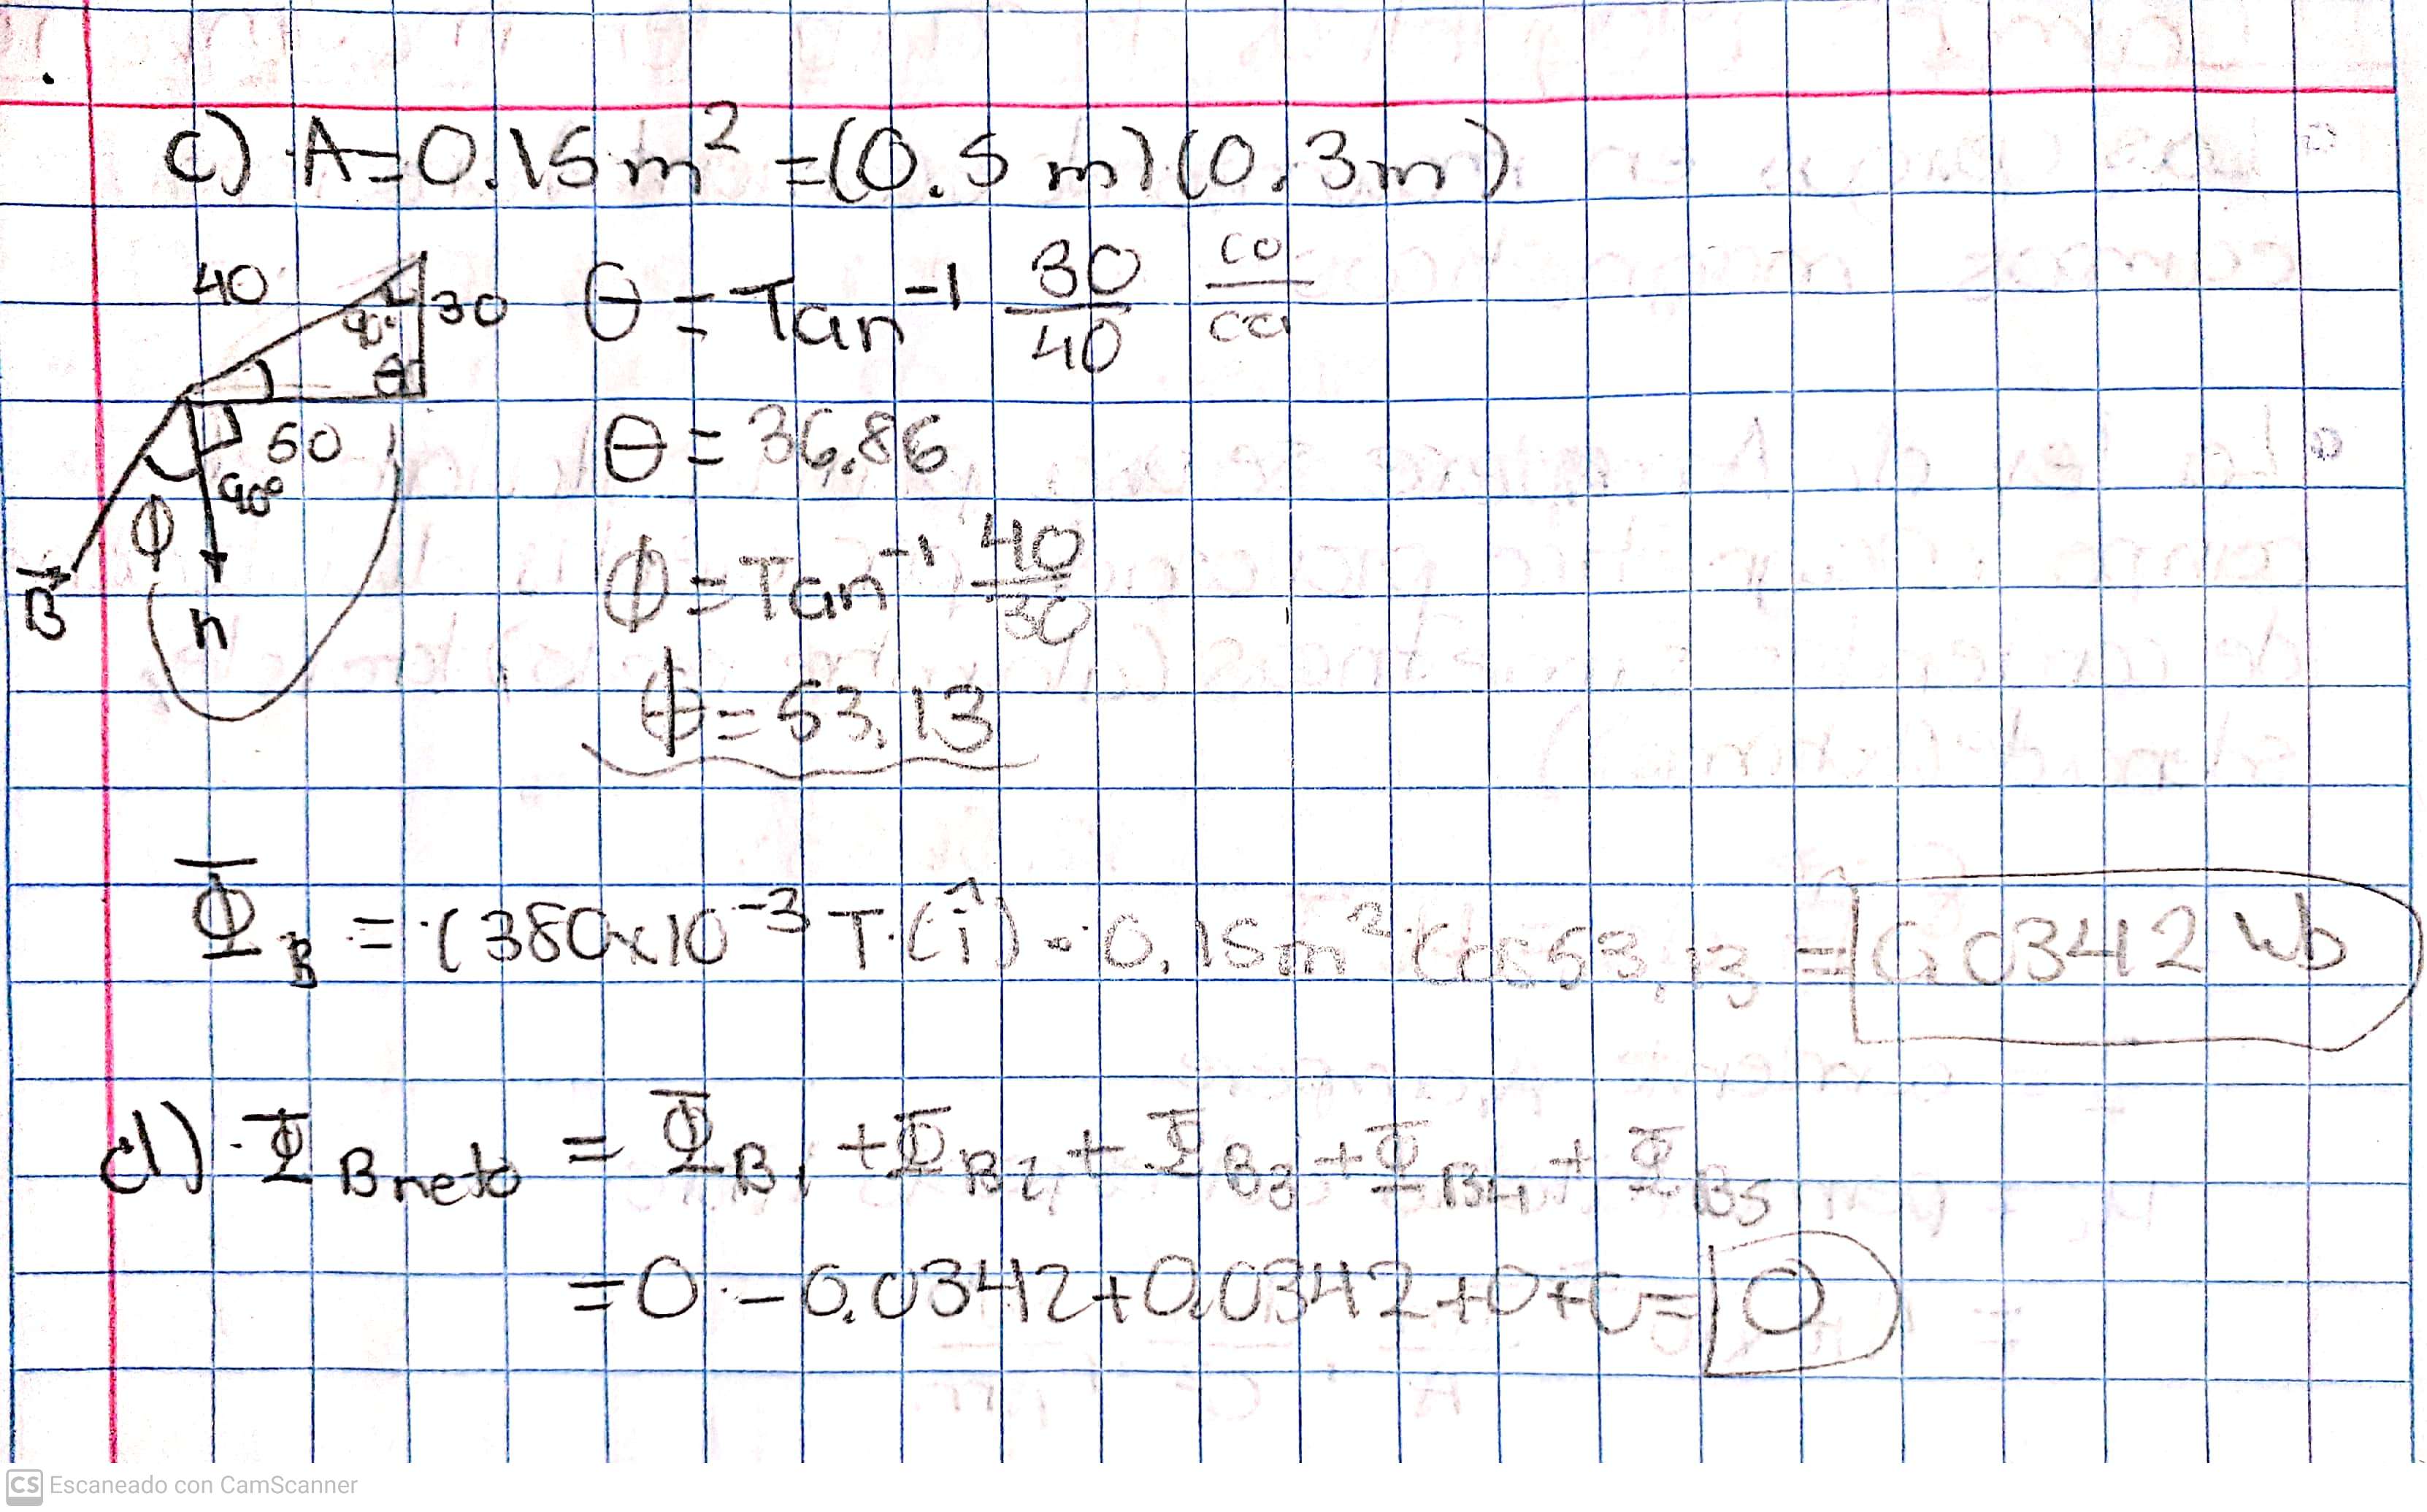 c) A=0.15m² =(0.5m)(0.3m)
40
30
θ = Tan⁻¹ 30/40 co/ca
θ
50
90°
θ = 36.86
Φ
B⃗
n
Φ = Tan⁻¹ 40/30
Φ = 53.13
Φ_B = (380x10⁻³ T (î) · 0.15m² Cos 53.13 = 0.0342 Wb
d) Φ_B neto = Φ_B1 + Φ_B2 + Φ_B3 + Φ_B4 + Φ_B5
= 0 - 0.0342 + 0.0342 + 0 + 0 = 0
CS Escaneado con CamScanner